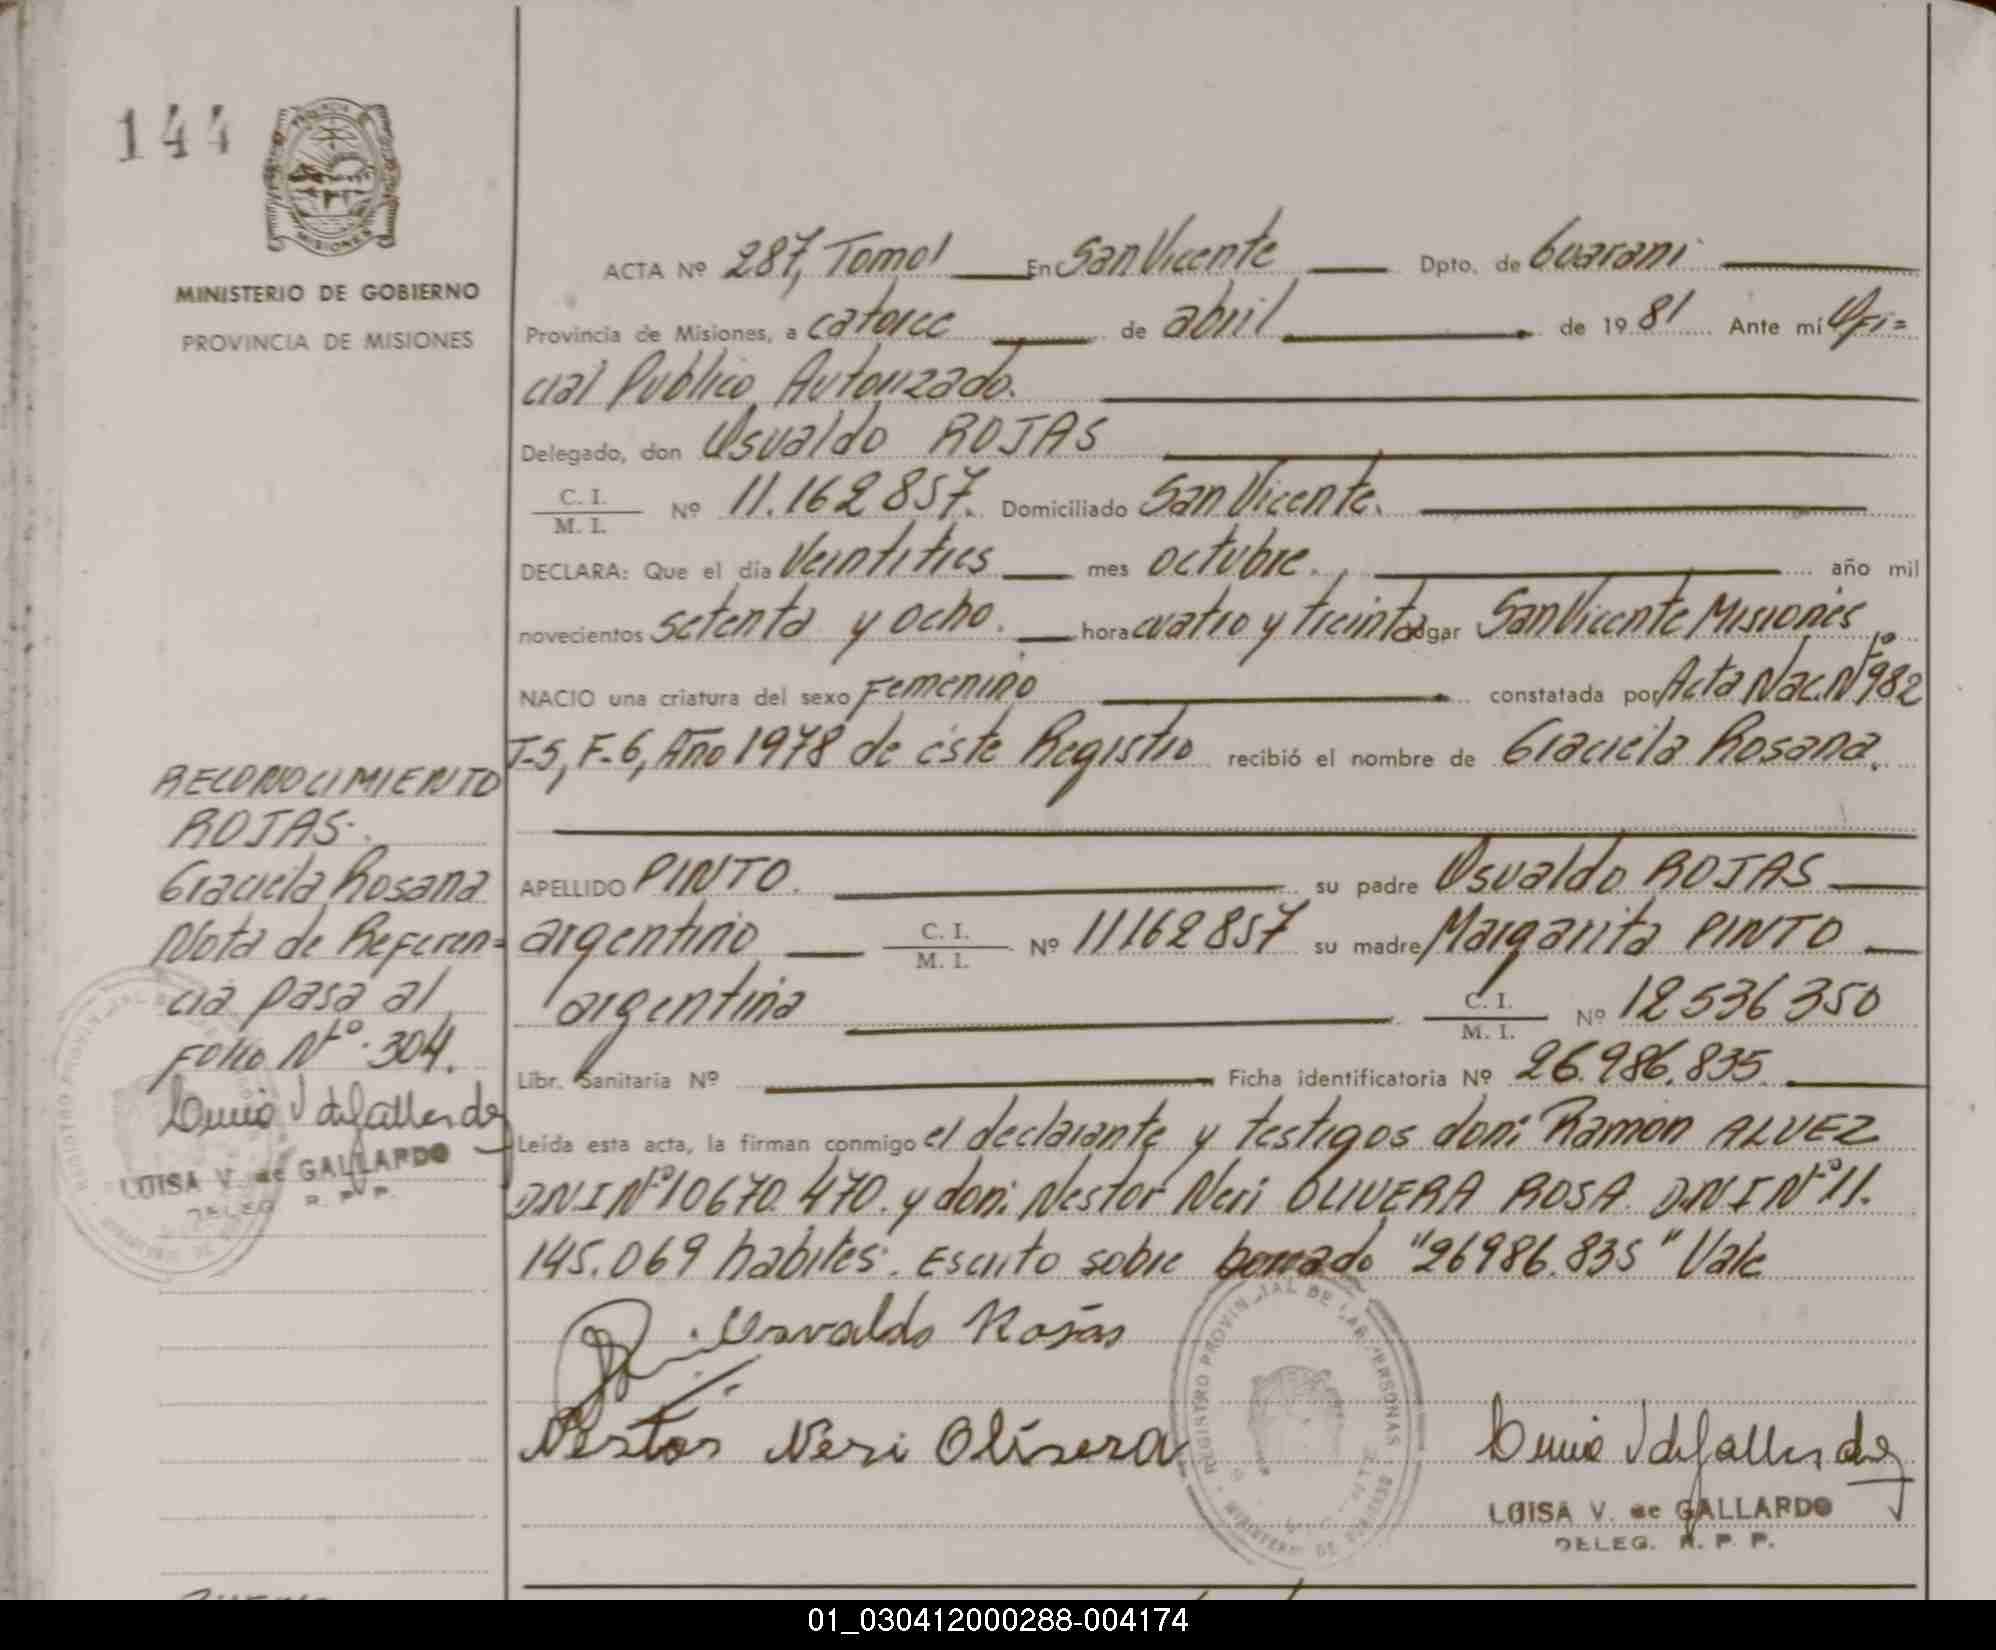 144
PROVINCIA
MISIONES
MINISTERIO DE GOBIERNO
PROVINCIA DE MISIONES
ACTA Nº 287, Tomo I En San Vicente Dpto. de Guarani
Provincia de Misiones, a catorce de abril de 1981 Ante mí Ofi=
cial Publico Autorizado.
Delegado, don Osvaldo ROJAS
C. I. / M. I. Nº 11.162857. Domiciliado San Vicente.
DECLARA: Que el día Veintitres mes octubre. año mil
novecientos setenta y ocho. hora cuatro y treinta lugar San Vicente Misiones
NACIO una criatura del sexo Femenino constatada por Acta Nac. Nº 982
T-5, F-6, Año 1978 de éste Registro recibió el nombre de Graciela Rosana.
APELLIDO PINTO. su padre Osvaldo ROJAS
argentino C. I. / M. I. Nº 11162857 su madre Margarita PINTO
argentina C. I. / M. I. Nº 12536350
Libr. Sanitaria Nº Ficha identificatoria Nº 26.986.835.
Leída esta acta, la firman conmigo el declarante y testigos don: Ramon ALVEZ
DNI Nº 10670.470. y don: Nestor Neri OLIVERA ROSA. D.N.I Nº 11.
145.069 habiles. Escrito sobre borrado "26986.835" Vale
Osvaldo Rojas
Nestor Neri Olivera
REGISTRO PROVINCIAL DE LAS PERSONAS
MINISTERIO DE GOBIERNO
LUISA V. de GALLARDO
DELEG. R. P. P.
RECONOCIMIENTO
ROJAS.
Graciela Rosana
Nota de Referen=
cia pasa al
Folio Nº. 304.
LUISA V. de GALLARDO
DELEG. R. P. P.
01_030412000288-004174